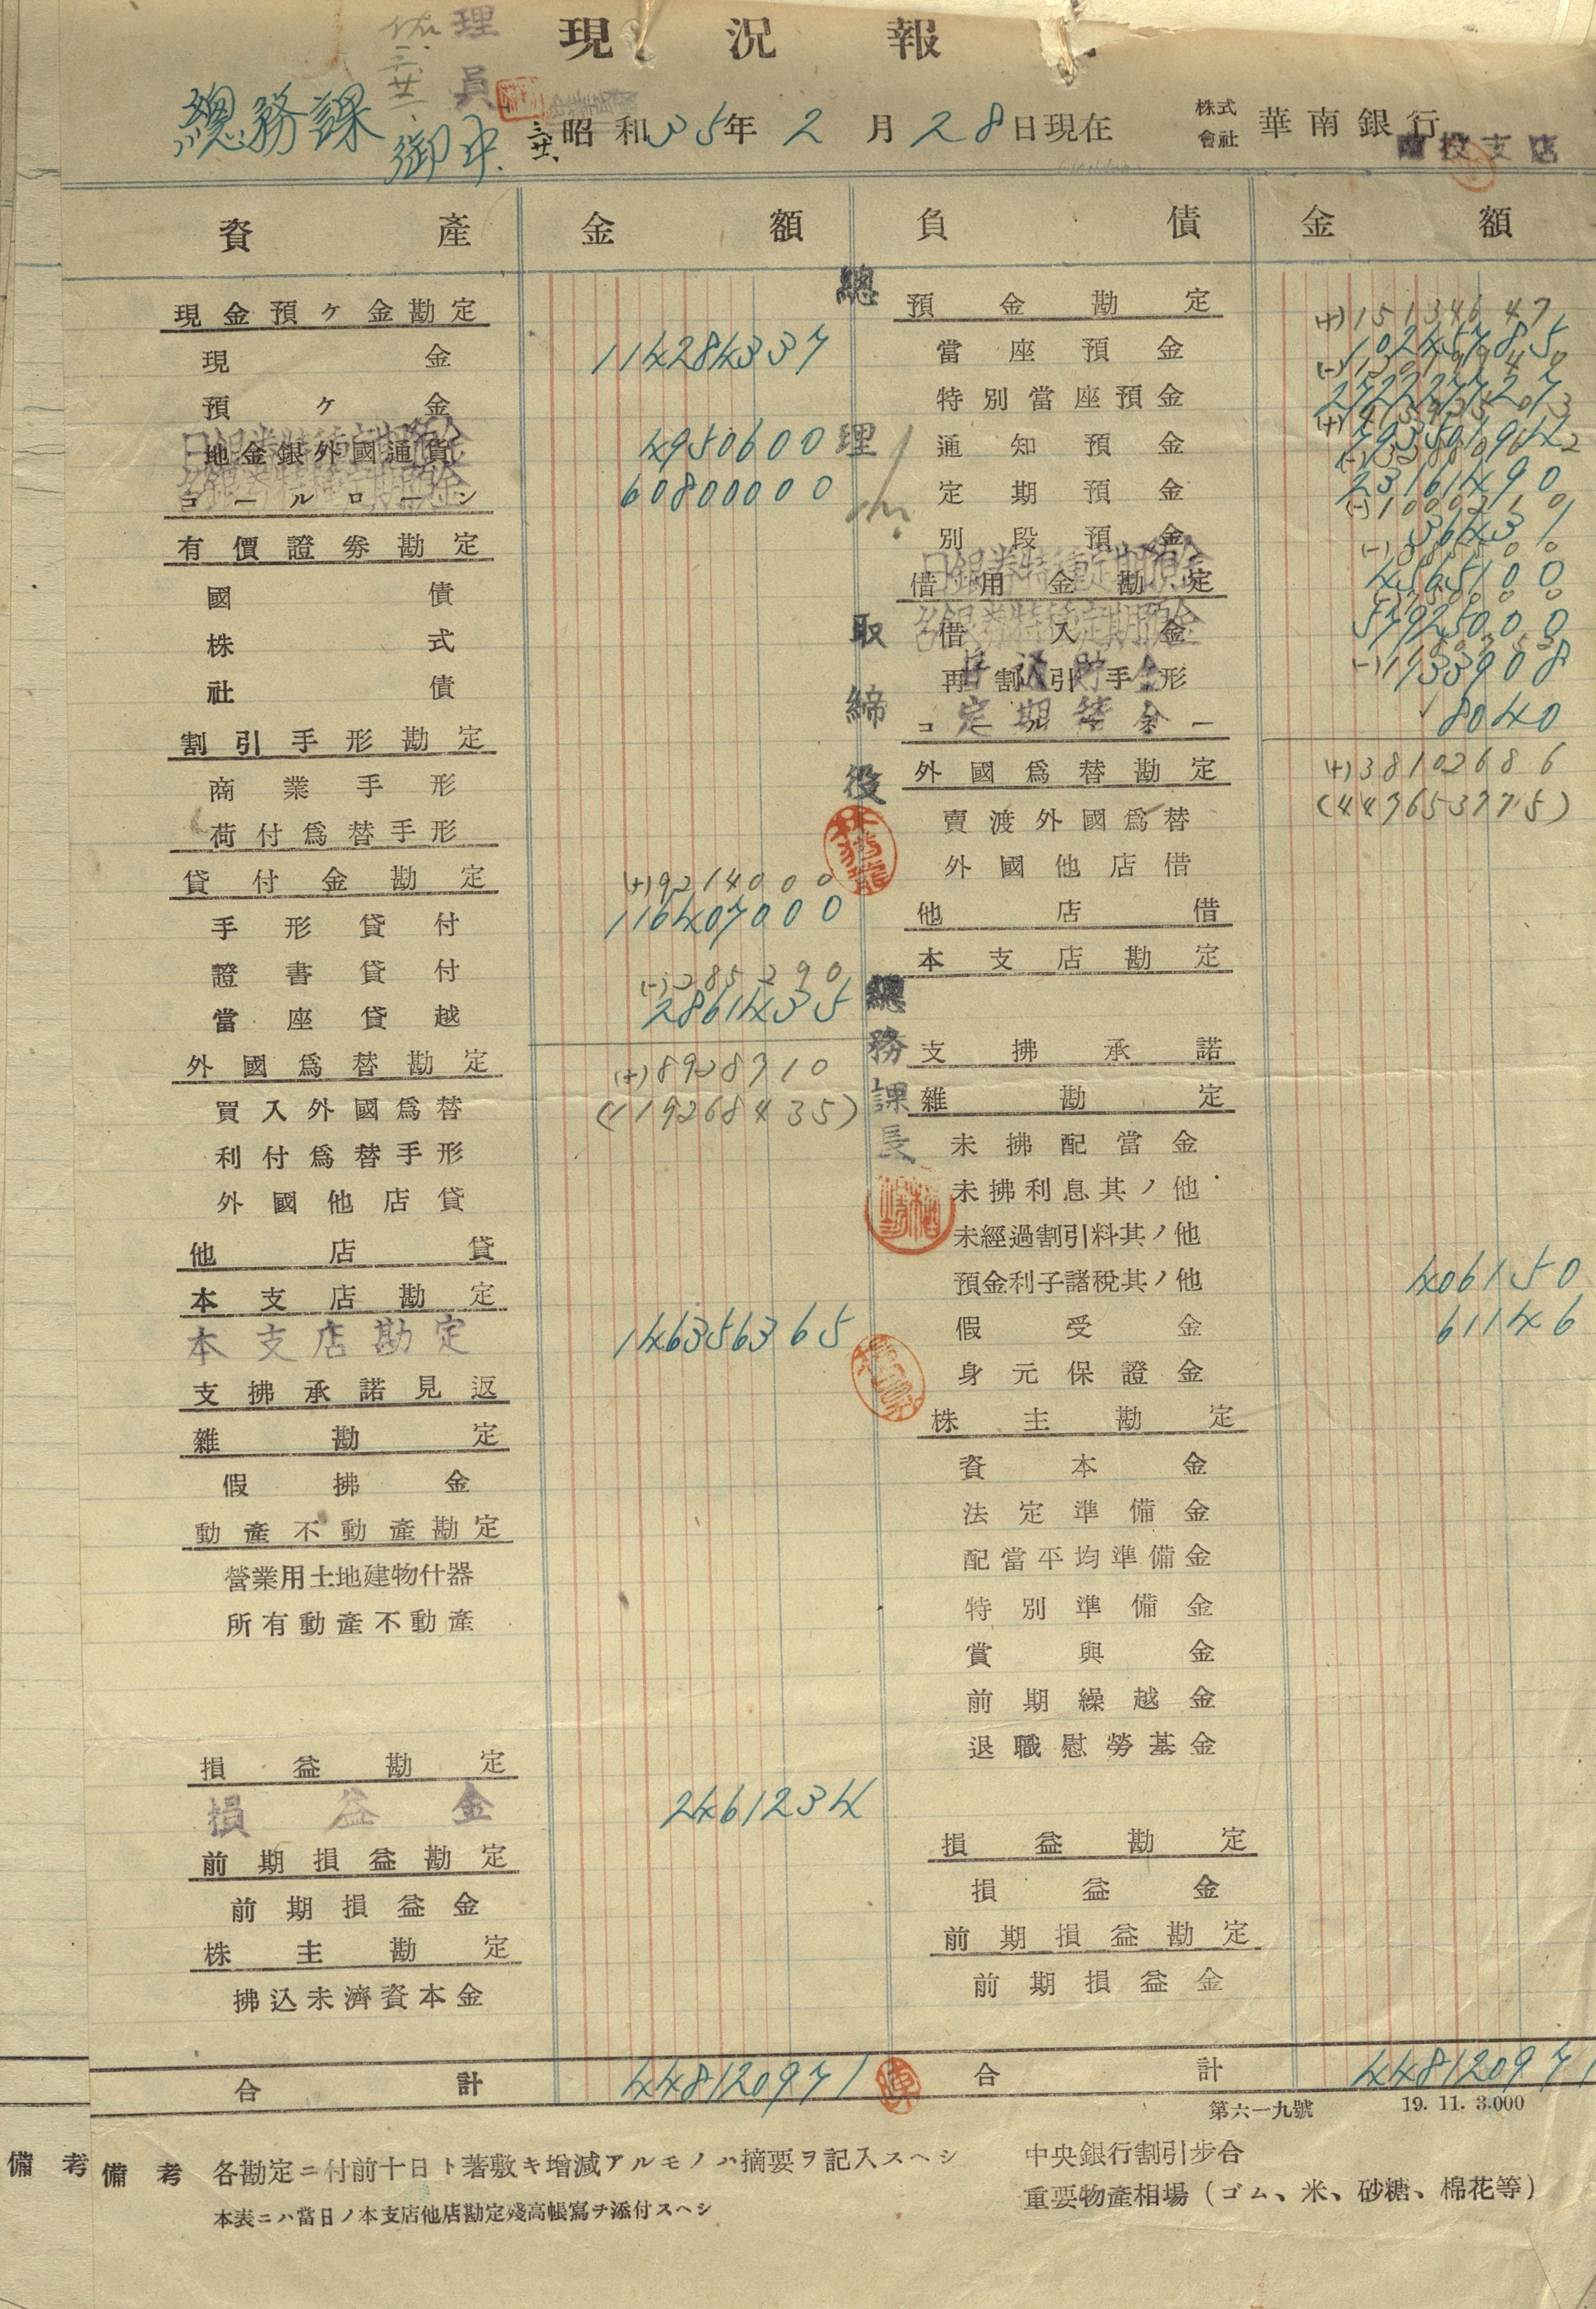 現況報
理員
總務課
御中
昭和35年2月28日現在
株式會社 華南銀行
投支店
資產 金額 負債 金額
現金預ケ金勘定
現金 114284337
預ケ金
地金銀外國通貨 4950600
コールローン 60800000
有價證券勘定
國債
株式
社債
割引手形勘定
商業手形
荷付爲替手形
貸付金勘定
(+)9214000
手形貸付 116407000
證書貸付
(-)285290
當座貸越 2861435
外國爲替勘定
(+)8928710
買入外國爲替
(119268435)
利付爲替手形
外國他店貸
他店貸
本支店勘定
本支店勘定 146356365
支拂承諾見返
雜勘定
假拂金
動產不動產勘定
營業用土地建物什器
所有動產不動產
損益勘定
損益金 2461234
前期損益勘定
前期損益金
株主勘定
拂込未濟資本金
合計 448120971
總理
取締役
總務課長
預金勘定
(+)15134647
當座預金 102457885
特別當座預金
通知預金
定期預金 23161490
別段預金 36431
借用金勘定
日銀券特種定期預金 4565100
借入金 57925000
再割引手形 133908
コールマネー 8040
外國爲替勘定
(+)38102686
賣渡外國爲替
(447653775)
外國他店借
他店借
本支店勘定
支拂承諾
雜勘定
未拂配當金
未拂利息其ノ他
未經過割引料其ノ他
預金利子諸稅其ノ他 406150
假受金 61146
身元保證金
株主勘定
資本金
法定準備金
配當平均準備金
特別準備金
賞與金
前期繰越金
退職慰勞基金
損益勘定
損益金
前期損益勘定
前期損益金
合計 448120971
第六一九號 19. 11. 3.000
備考
備考 各勘定ニ付前十日ト著敷キ增減アルモノハ摘要ヲ記入スヘシ
本表ニハ當日ノ本支店他店勘定殘高帳寫ヲ添付スヘシ
中央銀行割引步合
重要物產相場（ゴム、米、砂糖、棉花等）